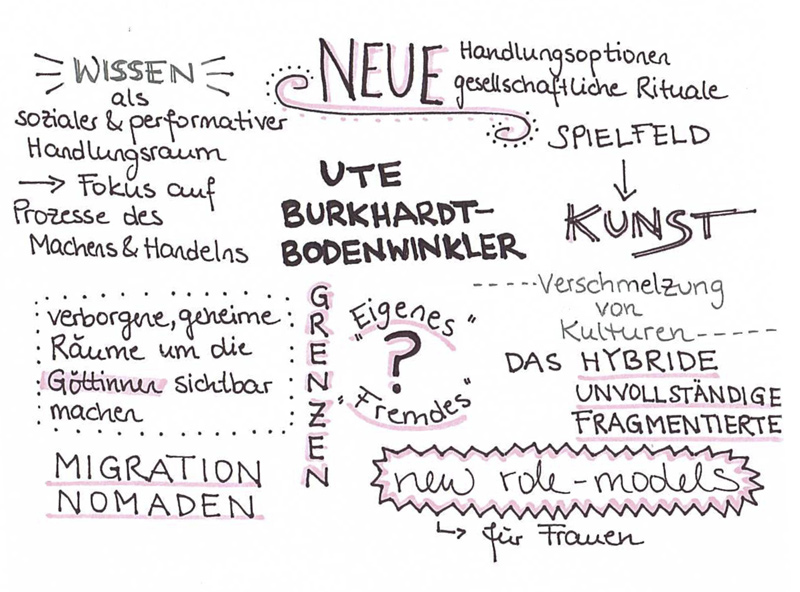 WISSEN
als
sozialer & performativer
Handlungsraum
→ Fokus auf
Prozesse des
Machens & Handelns
NEUE
Handlungsoptionen
gesellschaftliche Rituale
SPIELFELD
↓
KUNST
UTE
BURKHARDT-
BODENWINKLER
verborgene, geheime
Räume um die
Göttinnen sichtbar
machen
GRENZEN
"Eigenes"
?
"Fremdes"
-----Verschmelzung
von
Kulturen-----
DAS HYBRIDE
UNVOLLSTÄNDIGE
FRAGMENTIERTE
MIGRATION
NOMADEN
new role-models
↳ für Frauen